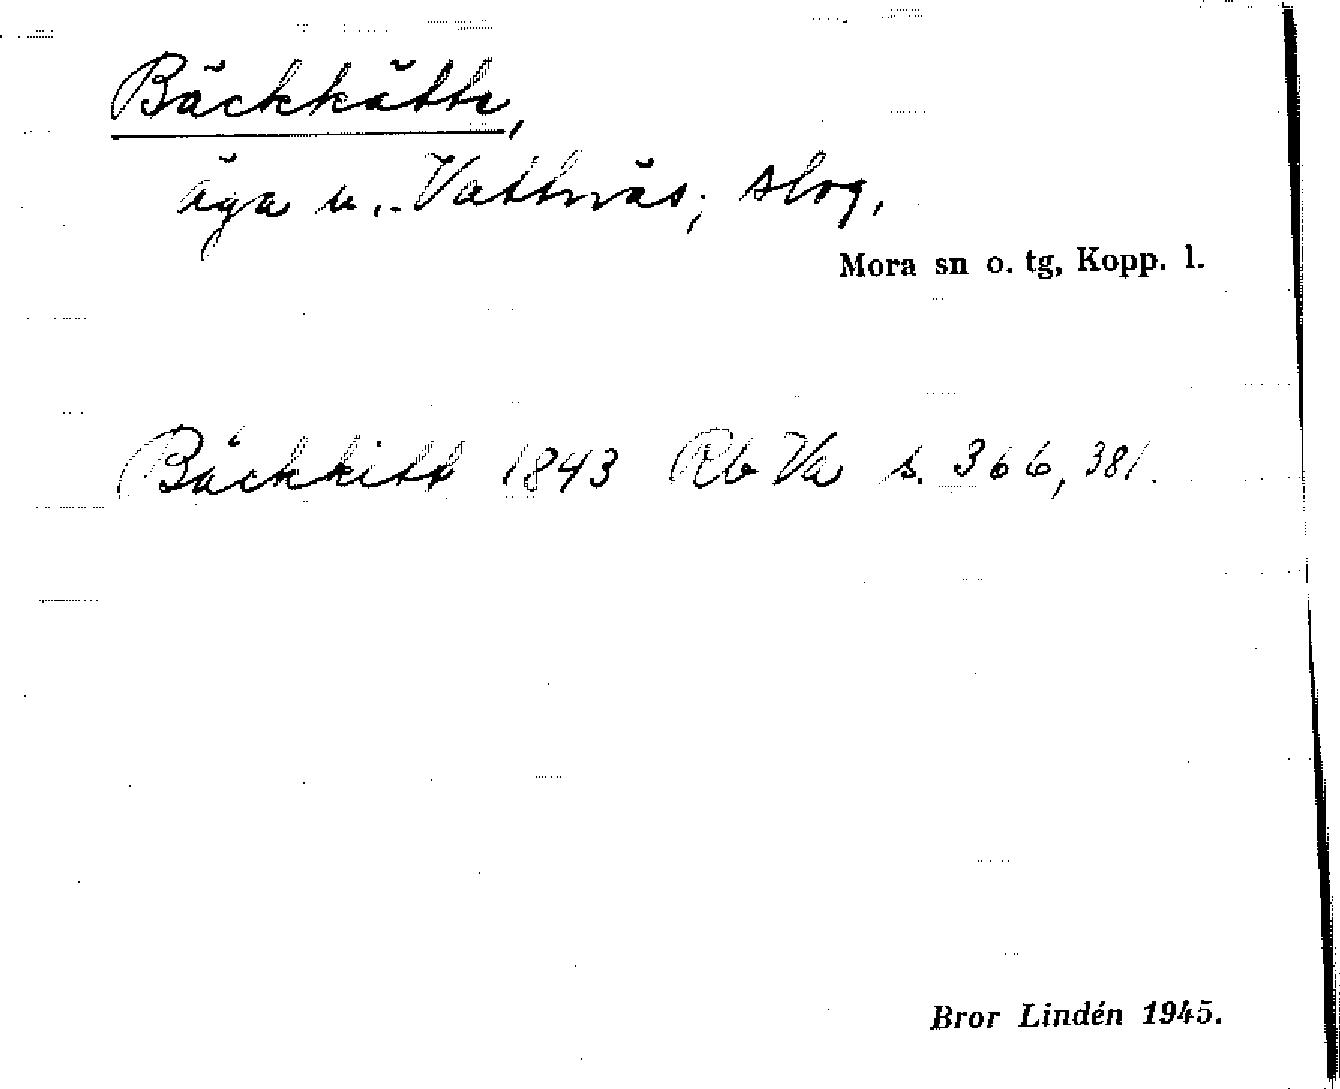 Bäckkätte,
äga u. Vattnäs; slog,
Mora sn o. tg, Kopp. l.
Bäckkitt 1843 Rb Va s. 366, 381.
Bror Lindén 1945.